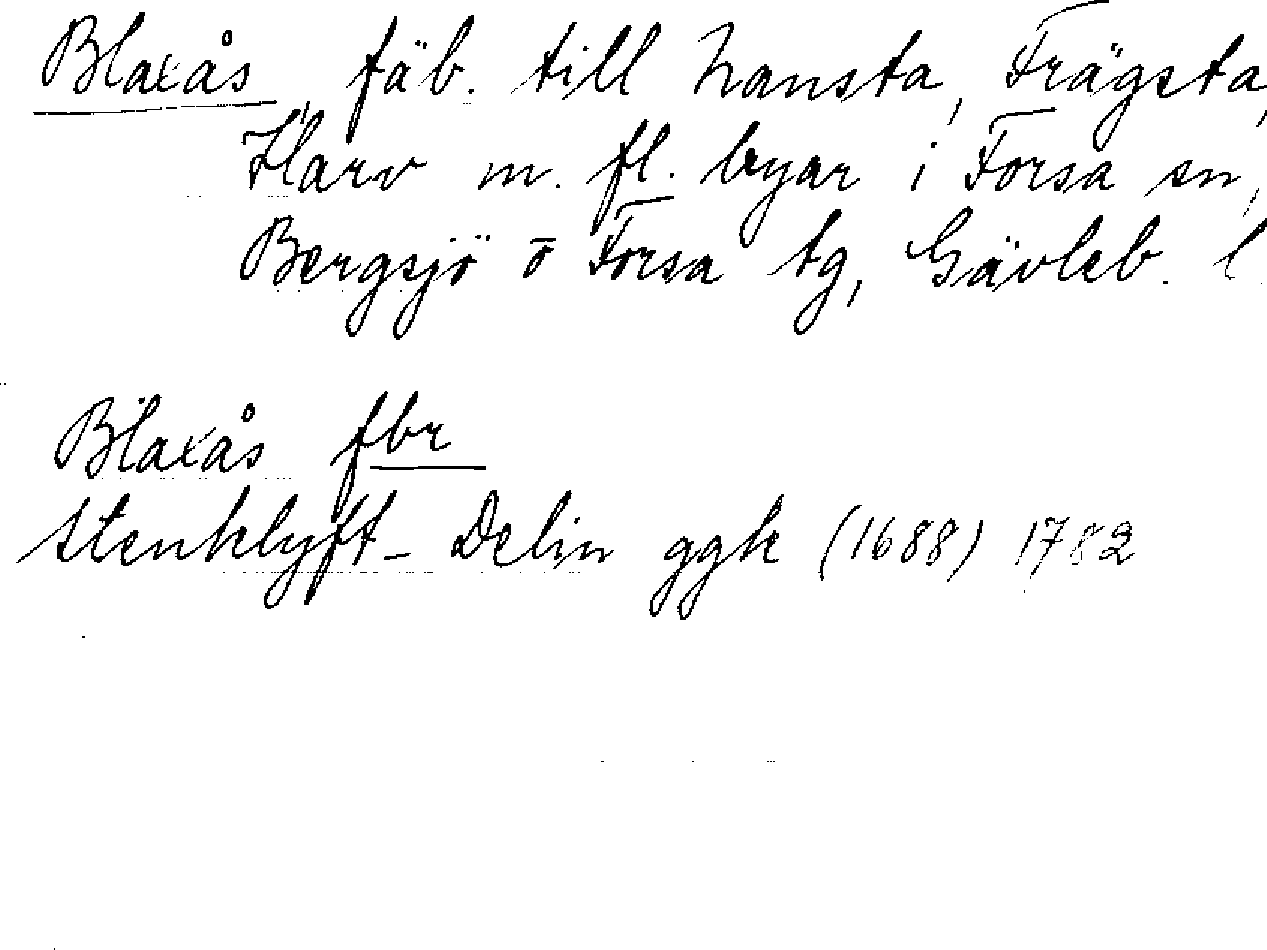 Blaxås, fäb. till Nansta, Frägsta,
Klarv m. fl. byar i Forsa sn,
Bergsjö o Forsa tg, Gävleb. l
Blaxås fbr
Stenklyft- Delin ggk (1688) 1782